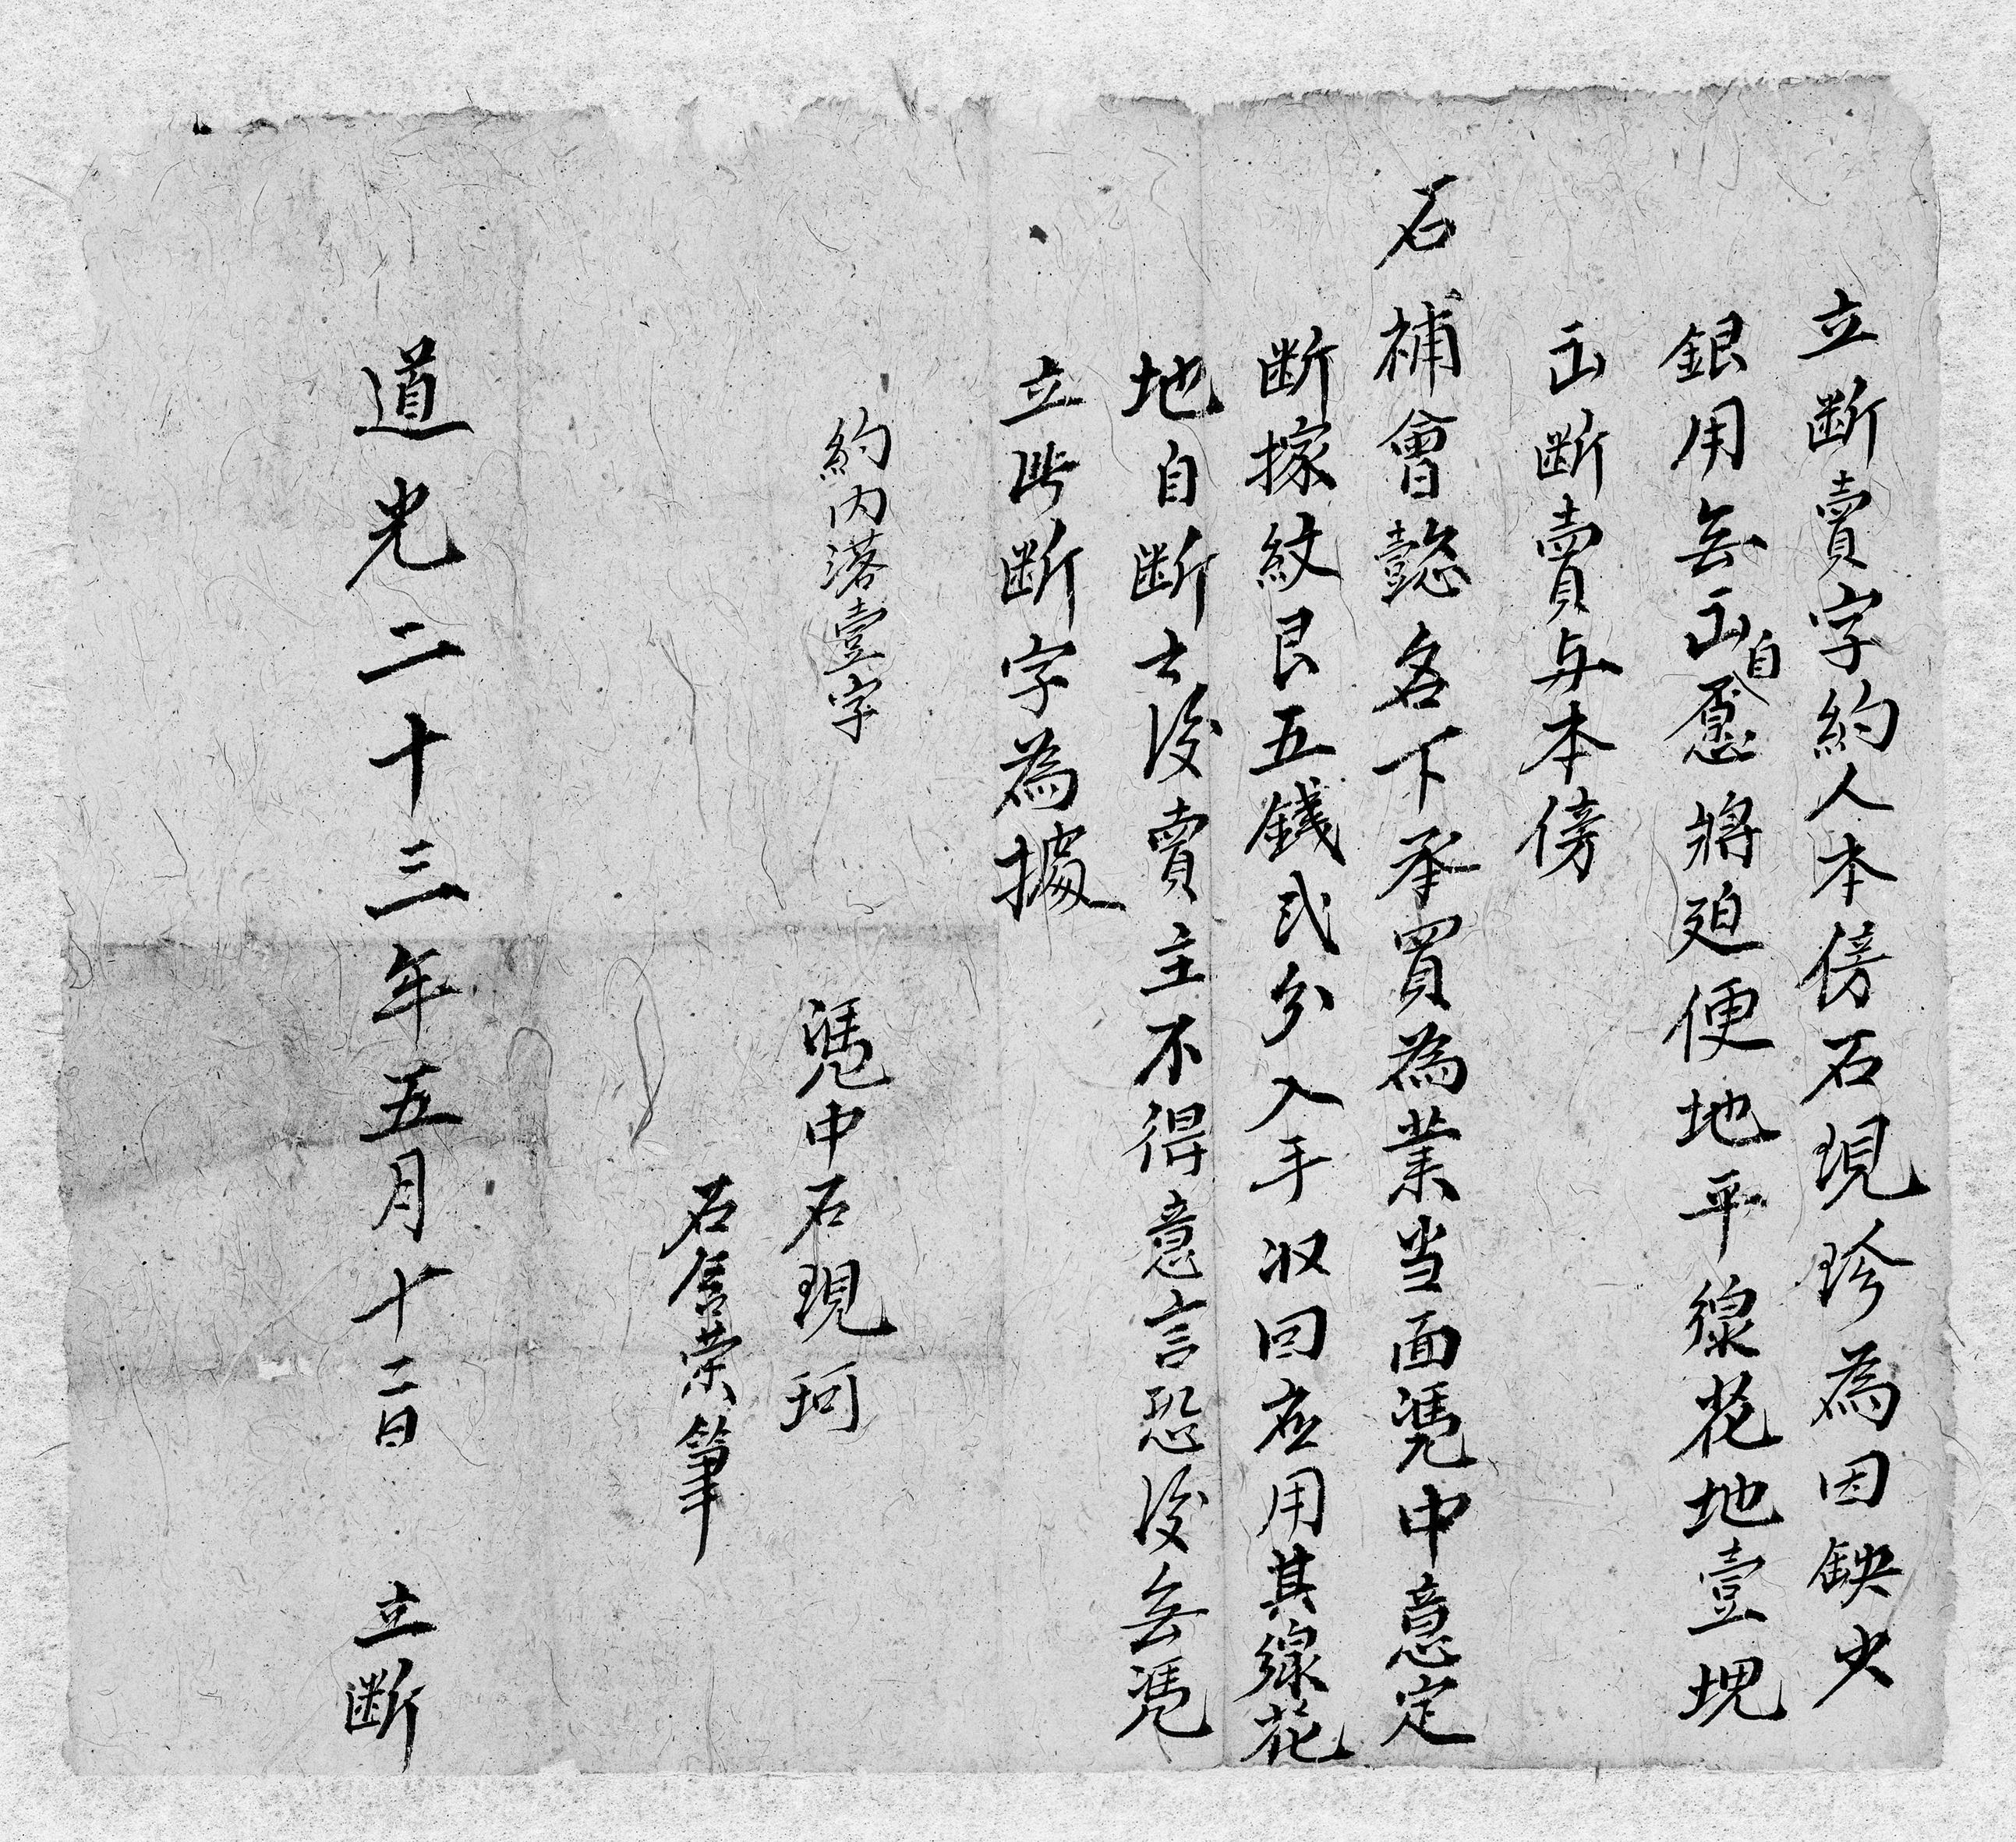 立断賣字約人本傍石現珍為因缺少
銀用無出自愿將廹便地平線花地壹塊
出断賣与本傍
石補會懿名下承買為業当面凴中意定
断㨿紋艮五錢弍分入手收回应用其線花
地自断之後賣主不得意言恐後無凴
立此断字為據
約内落壹字
凴中石現珂
石含荣筆
道光二十三年五月十二日 立断